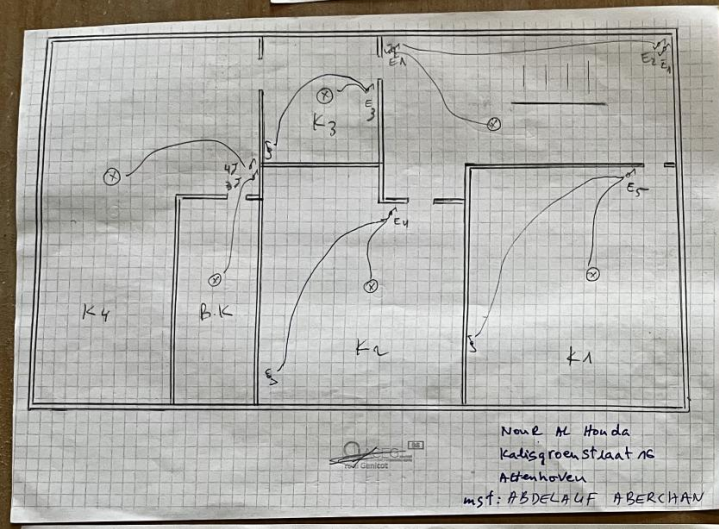 E1
E2 E1
E3
K3
4J
3J
E5
E4
K4
B.K
K2
K1
Nour Al Houda
Kalisgroenstraat 16
Attenhoven
msf: ABDELAUF ABERCHAN
Yvon Genicot